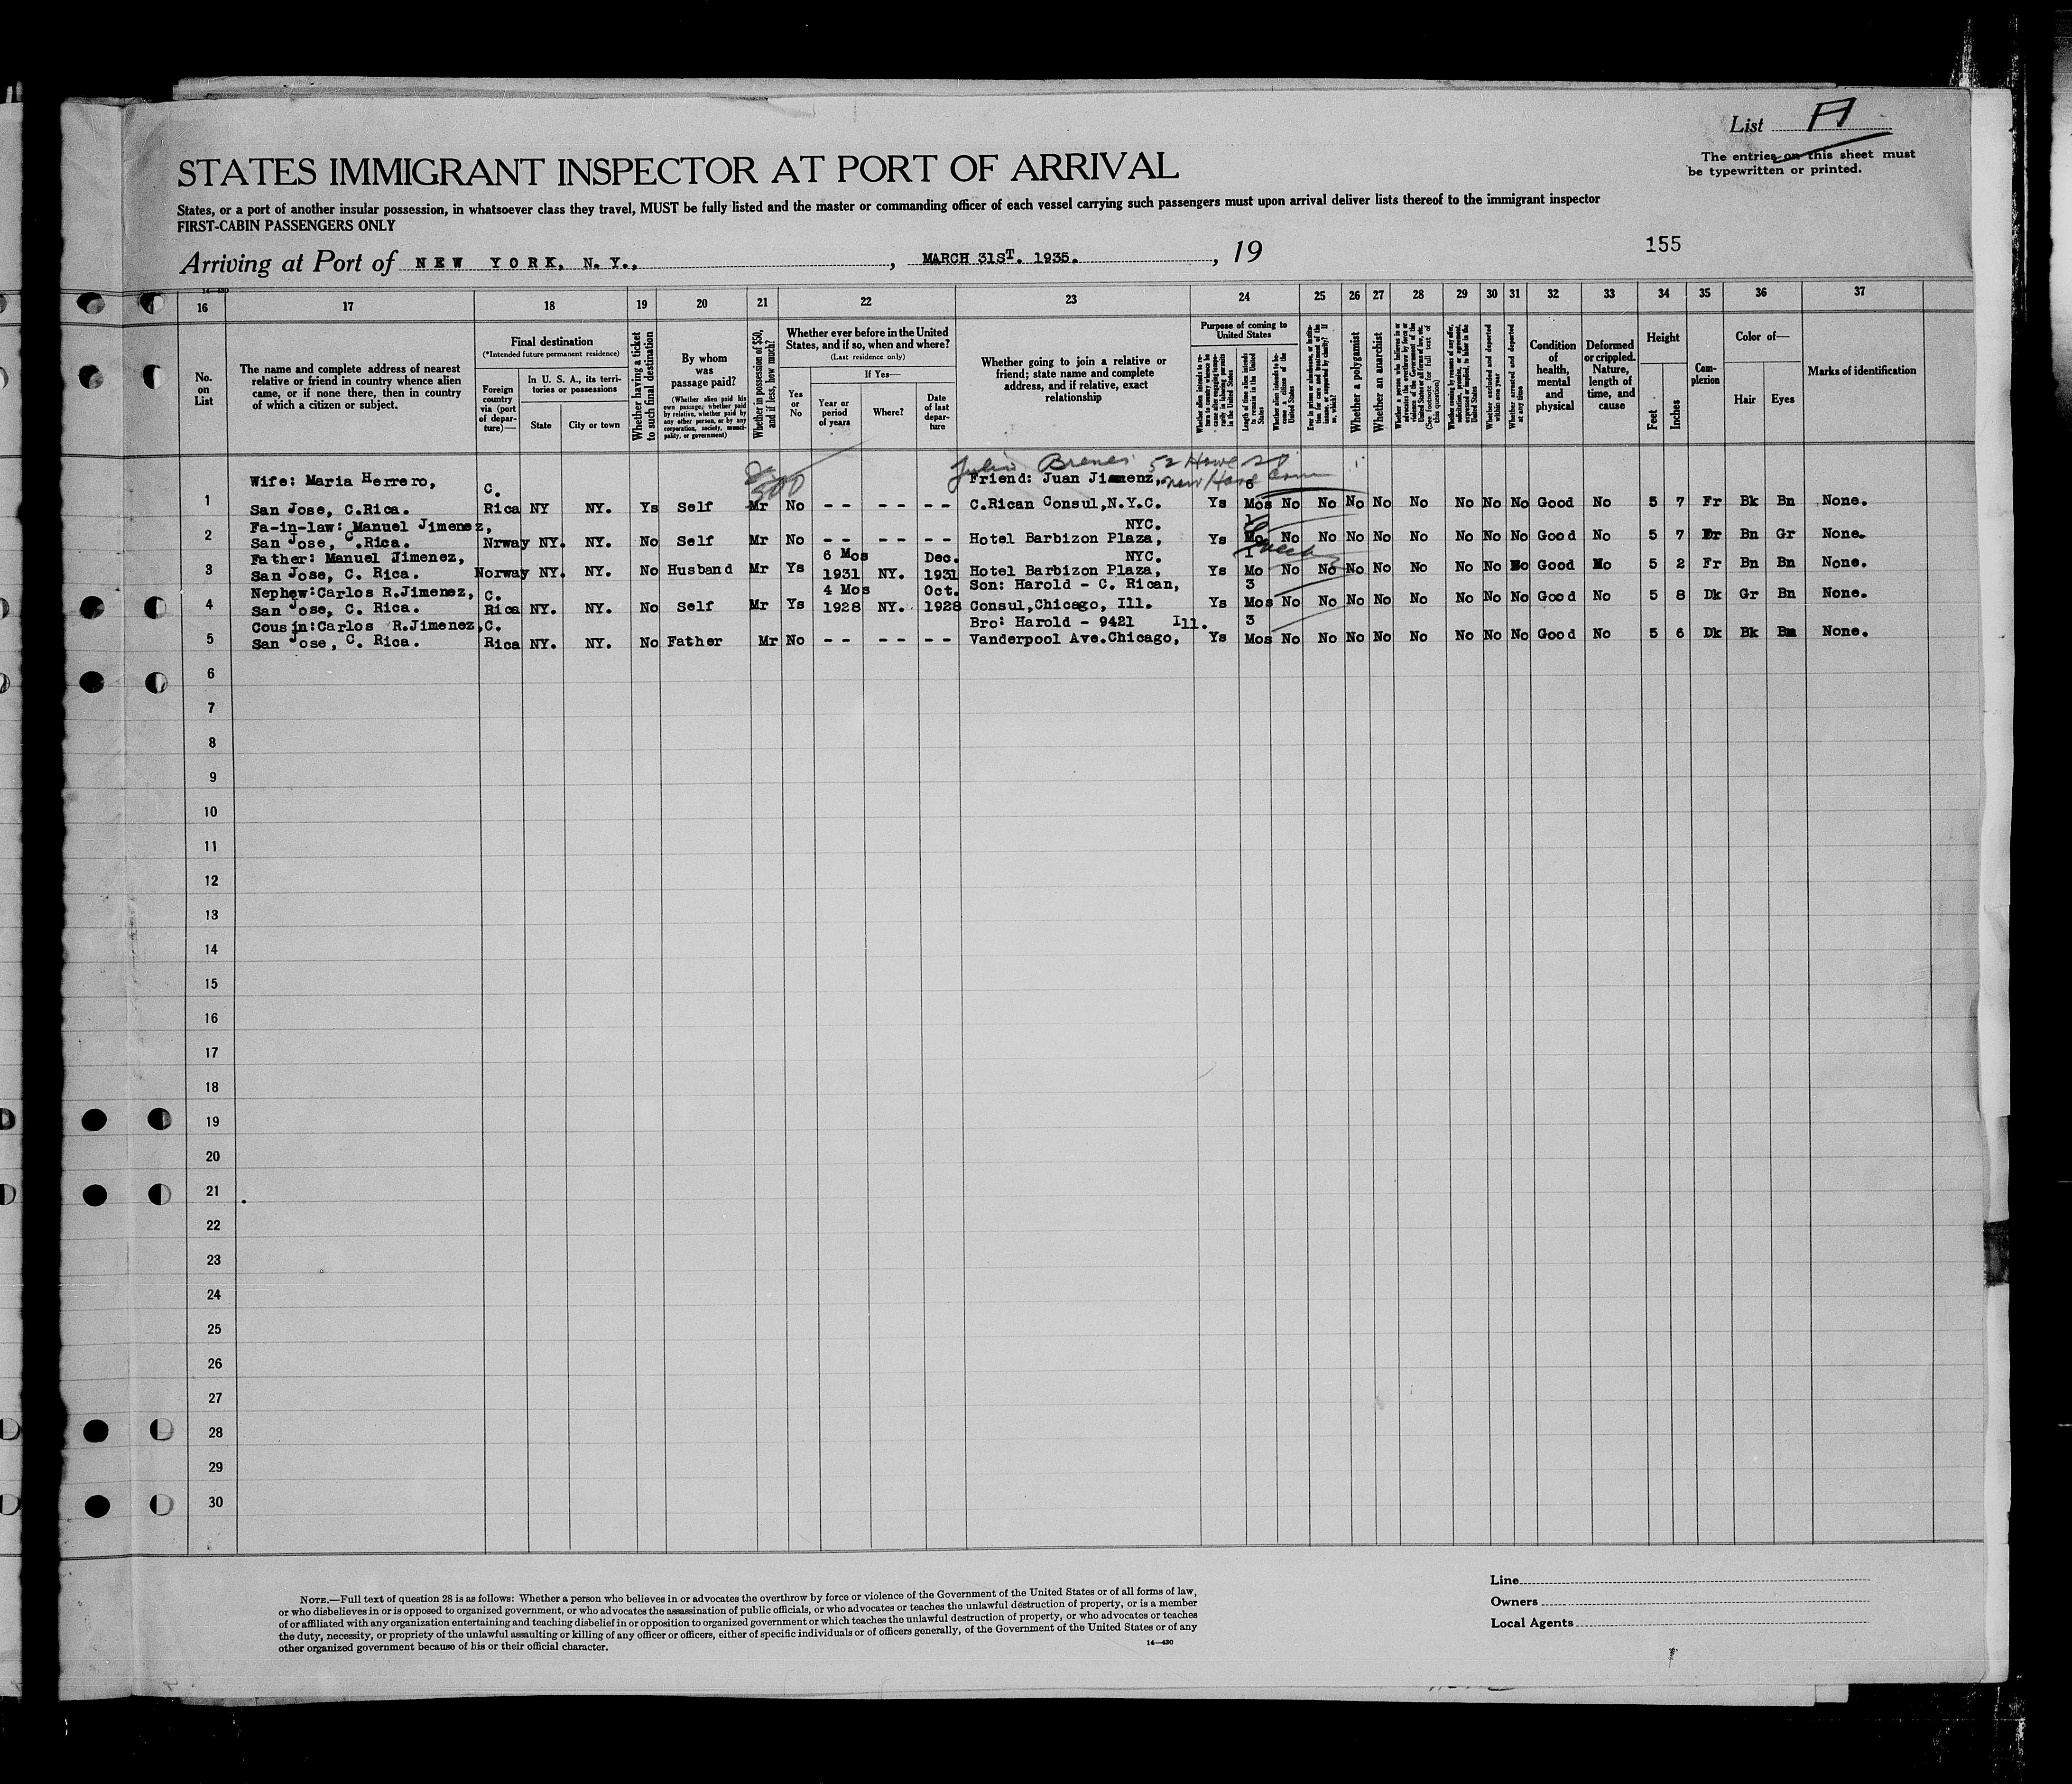 List A
The entries on this sheet must
be typewritten or printed.
STATES IMMIGRANT INSPECTOR AT PORT OF ARRIVAL
States, or a port of another insular possession, in whatsoever class they travel, MUST be fully listed and the master or commanding officer of each vessel carrying such passengers must upon arrival deliver lists thereof to the immigrant inspector
FIRST-CABIN PASSENGERS ONLY
155
Arriving at Port of NEW YORK, N.Y., , MARCH 31ST. 1935. , 19
16 17 18 19 20 21 22 23 24 25 26 27 28 29 30 31 32 33 34 35 36 37
No. on List
The name and complete address of nearest
relative or friend in country whence alien
came, or if none there, then in country
of which a citizen or subject.
Final destination
(*Intended future permanent residence)
Foreign country via (port of departure)—
In U. S. A., its territories or possessions
State
City or town
Whether having a ticket to such final destination
By whom was passage paid?
(Whether alien paid his own passage, whether paid by relative, whether paid by any other person, or by any corporation, society, municipality, or government)
Whether in possession of $50, and if less, how much?
Whether ever before in the United
States, and if so, when and where?
(Last residence only)
Yes or No
If Yes—
Year or period of years
Where?
Date of last departure
Whether going to join a relative or
friend; state name and complete
address, and if relative, exact
relationship
Purpose of coming to
United States
Length of time alien intends to remain in the United States
Whether alien intends to become a citizen of the United States
Whether a polygamist
Whether an anarchist
(See footnote for full text of this question)
Whether excluded and deported within one year
Whether arrested and deported at any time
Condition of health, mental and physical
Deformed or crippled. Nature, length of time, and cause
Height
Feet
Inches
Complexion
Color of—
Hair
Eyes
Marks of identification
500
Julio Brenes 52 Howe
Wife: Maria Herrero, C. Friend: Juan Jiamenz, New Have Conn 6
1 San Jose, C.Rica. Rica NY NY. Ys Self Mr No -- -- -- C.Rican Consul,N.Y.C. Ys Mos No No No No No No No No Good No 5 7 Fr Bk Bn None.
Fa-in-law: Manuel Jimenez, NYC.
2 San Jose, C.Rica. Nrway NY. NY. No Self Mr No -- -- -- Hotel Barbizon Plaza, Ys Mo No No No No No No No No Good No 5 7 Dr Bn Gr None.
Father: Manuel Jimenez, 6 Mos Dec. NYC. 1
3 San Jose, C. Rica. Norway NY. NY. No Husband Mr Ys 1931 NY. 1931 Hotel Barbizon Plaza, Ys Mo No No No No No No No No Good No 5 2 Fr Bn Bn None.
Nephew:Carlos R.Jimenez, C. 4 Mos Oct. Son: Harold - C. Rican, 3
4 San Jose, C. Rica. Rica NY. NY. No Self Mr Ys 1928 NY. 1928 Consul,Chicago, Ill. Ys Mos No No No No No No No No Good No 5 8 Dk Gr Bn None.
Cousin:Carlos R.Jimenez,C. Bro: Harold - 9421 Ill. 3
5 San Jose, C. Rica. Rica NY. NY. No Father Mr No -- -- -- Vanderpool Ave.Chicago, Ys Mos No No No No No No No No Good No 5 6 Dk Bk Bn None.
6
7
8
9
10
11
12
13
14
15
16
17
18
19
20
21
22
23
24
25
26
27
28
29
30
NOTE.—Full text of question 28 is as follows: Whether a person who believes in or advocates the overthrow by force or violence of the Government of the United States or of all forms of law,
or who disbelieves in or is opposed to organized government, or who advocates the assassination of public officials, or who advocates or teaches the unlawful destruction of property, or is a member
of or affiliated with any organization entertaining and teaching disbelief in or opposition to organized government or which teaches the unlawful destruction of property, or who advocates or teaches
the duty, necessity, or propriety of the unlawful assaulting or killing of any officer or officers, either of specific individuals or of officers generally, of the Government of the United States or of any
other organized government because of his or their official character.
14—430
Line
Owners
Local Agents